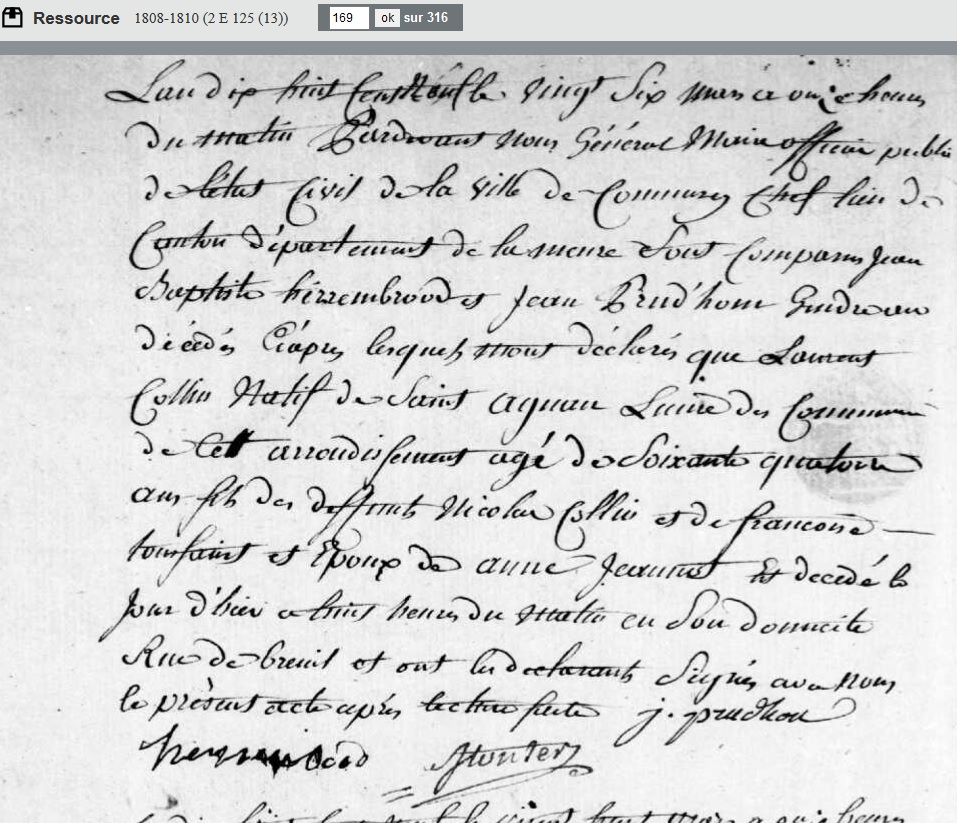 Ressource 1808-1810 (2 E 125 (13)) 169 ok sur 316
Lan dix huit Cent Neuf le vingt Six mars a onze heures
du matin Pardevant nous Général Maire officier public
de létat Civil de la ville de Commercy Chef lieu de
Canton département de la meuse Sont Comparus Jean
Baptiste et Jean Prud'hom Gendre au
décédés Ciàpres lesquels mont déclarés que Laurent
Collin Natif de Saint agnan Lune des Communes
de Cett arrondissement agé de Soixante quatorze
ans fils des deffunts Nicolas Collin et de francoise
toussaint et Epoux de anne Jeannot Est decedé le
Jour d'hier a huit heures du matin en Son domicile
Rue de breuil et ont les declarants Signés avec nous
le présent acte après lecture faite j. prudhon